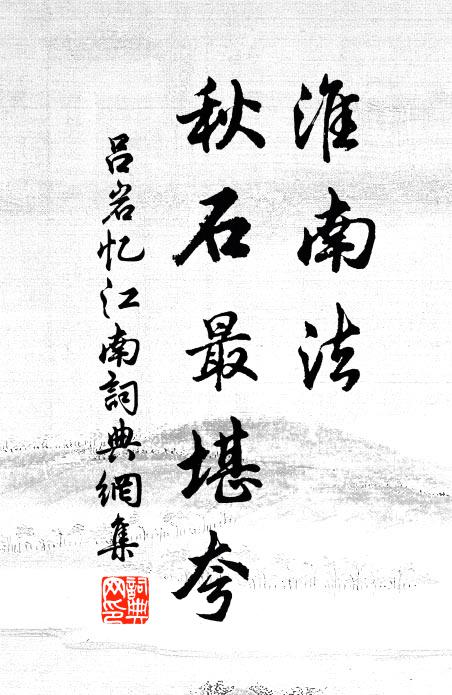 淮南法
秋石最堪夸
吕岩忆江南詞典網集
詞典